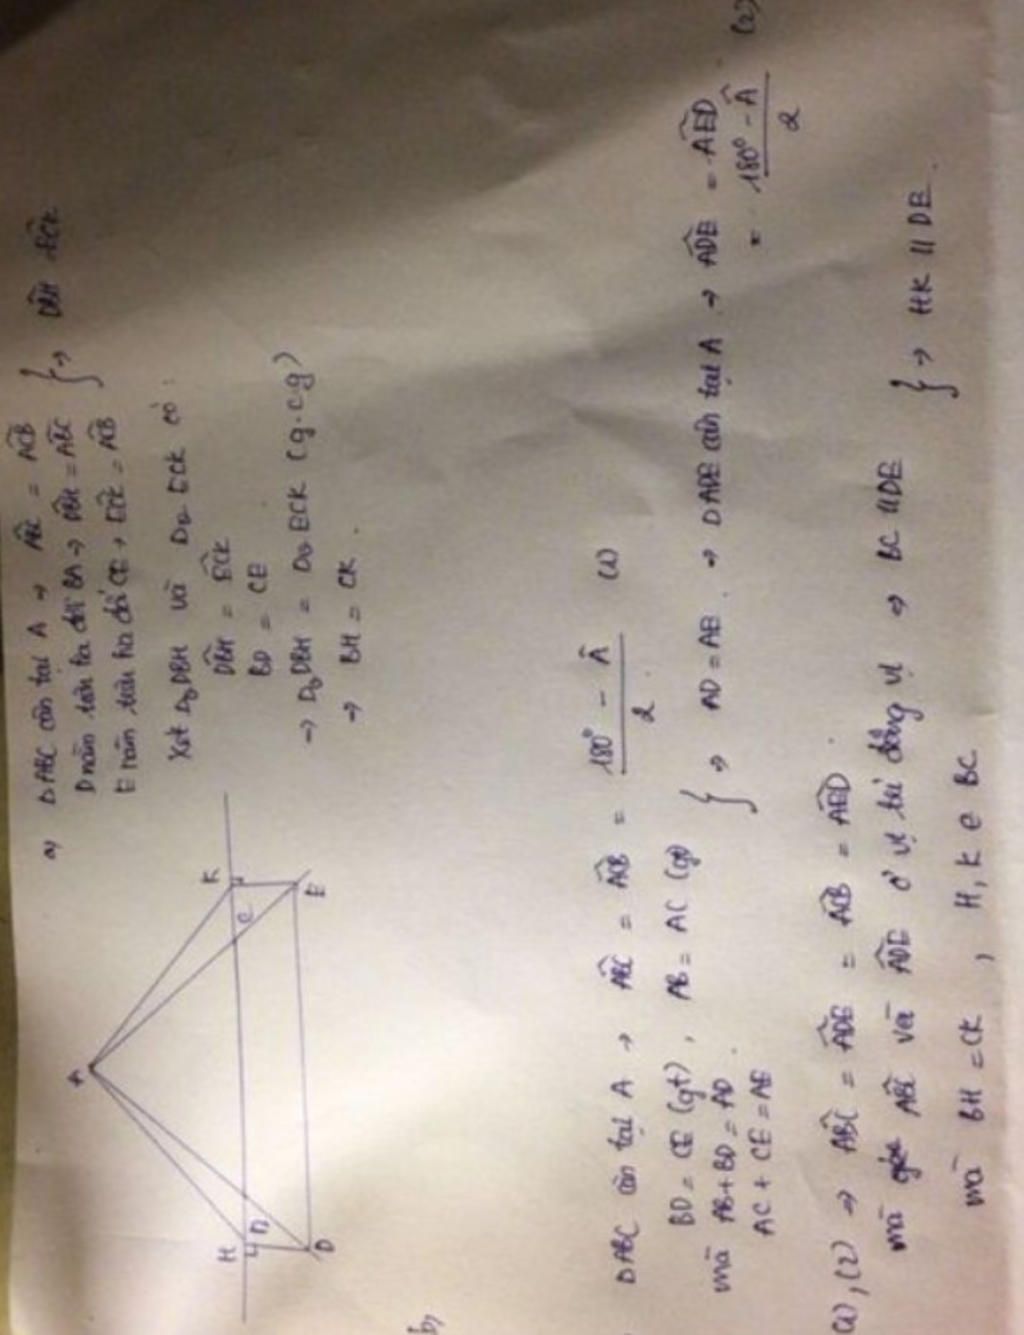 a) ΔABC cân tại A → ABC^ = ACB^
D nằm trên tia đối BA → DBH^ = ABC^
E nằm trên tia đối CE → ECK^ = ACB^
} → DBH^ ECK^
Xét Δo DBH và Δo ECK có:
DBH^ = ECK^
BD = CE
→ Δo DBH = Δo ECK (g.c.g)
→ BH = CK.
A
H
K
B
C
D
E
b)
ΔABC cân tại A → ABC^ = ACB^ = (180° - A^)/2 (1)
BD = CE (gt), AB = AC (gt)
mà AB + BD = AD
AC + CE = AE
} → AD = AE. → ΔADE cân tại A → ADE^ = AED^
= (180° - A^)/2 (2)
(1), (2) → ABC^ = ADE^ = ACB^ = AED^.
mà góc ABC^ và ADE^ ở vị trí đồng vị → BC // DE
mà BH = CK, H, K ∈ BC
} → HK // DE.